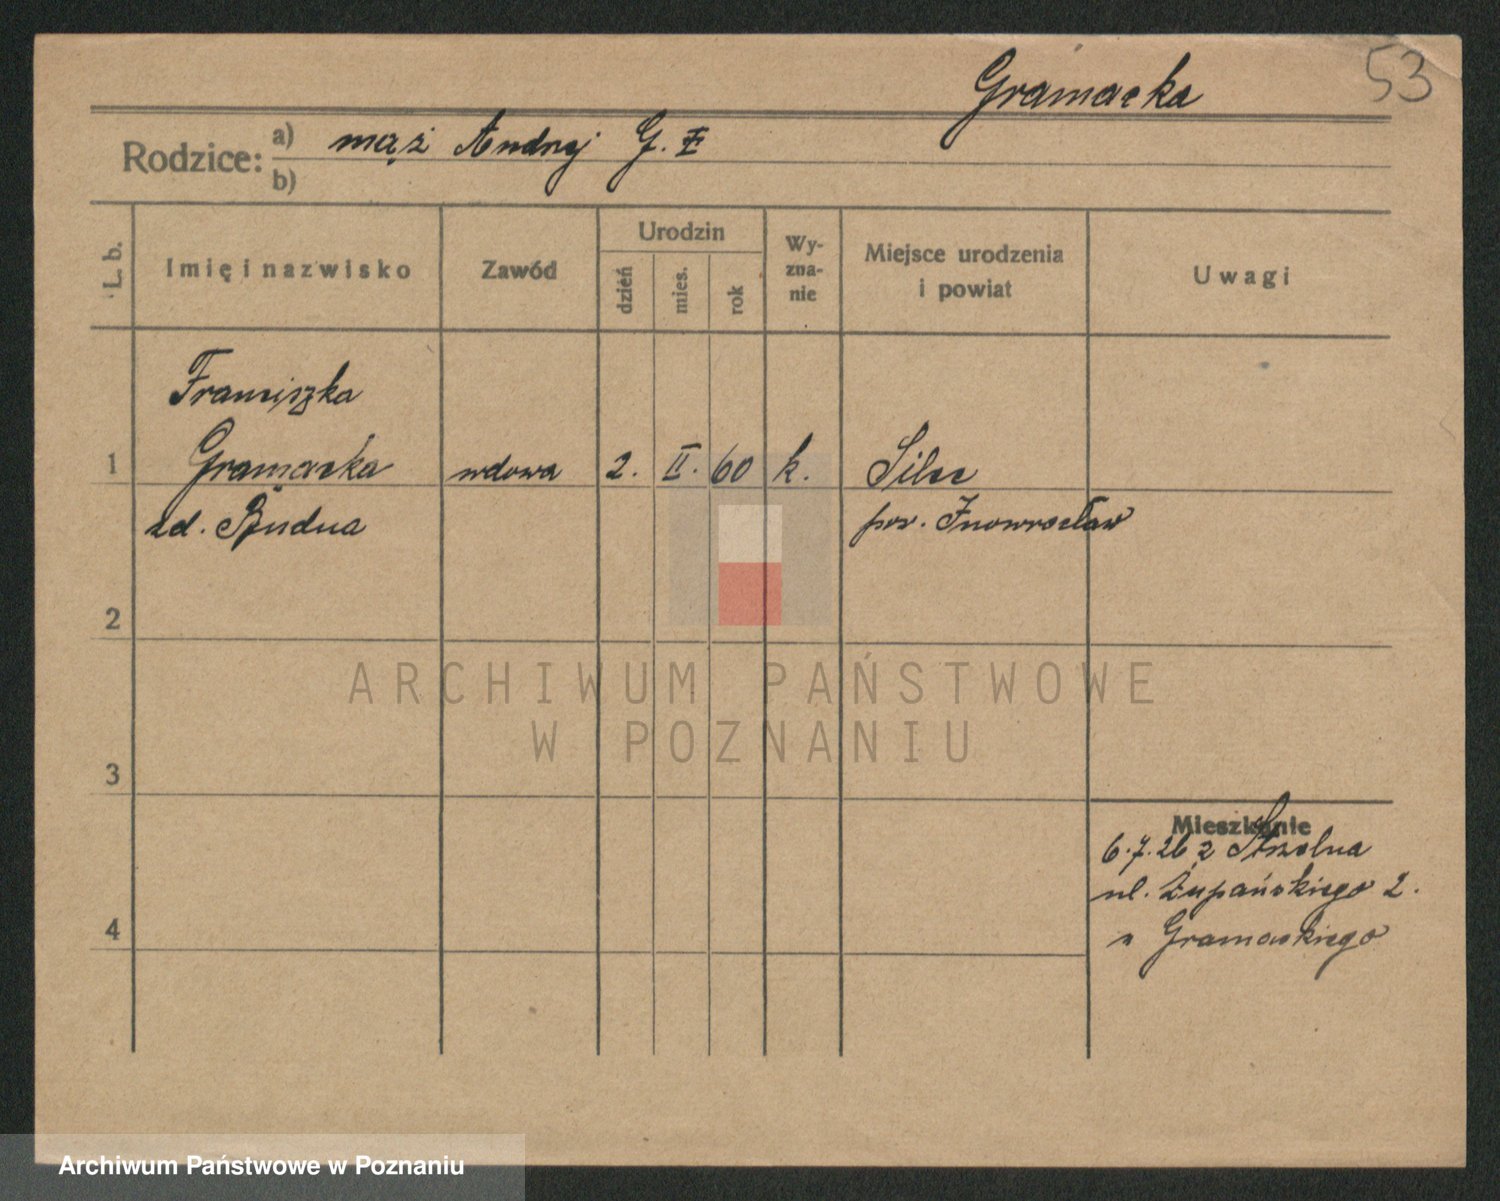 53
Gramacka
Rodzice: a) mąż Andrzej G. Ɨ
b)
L. b. Imię i nazwisko Zawód Urodzin dzień mies. rok Wyzna-nie Miejsce urodzenia i powiat Uwagi
Franciszka
1 Gramacka wdowa 2. II. 60 k.
zd. pow. Inowrocław
2
ARCHIWUM PAŃSTWOWE
W POZNANIU
3
Mieszkanie
6.7.26 z
ul. Żupańskiego 2.
Gramackiego
4
Archiwum Państwowe w Poznaniu